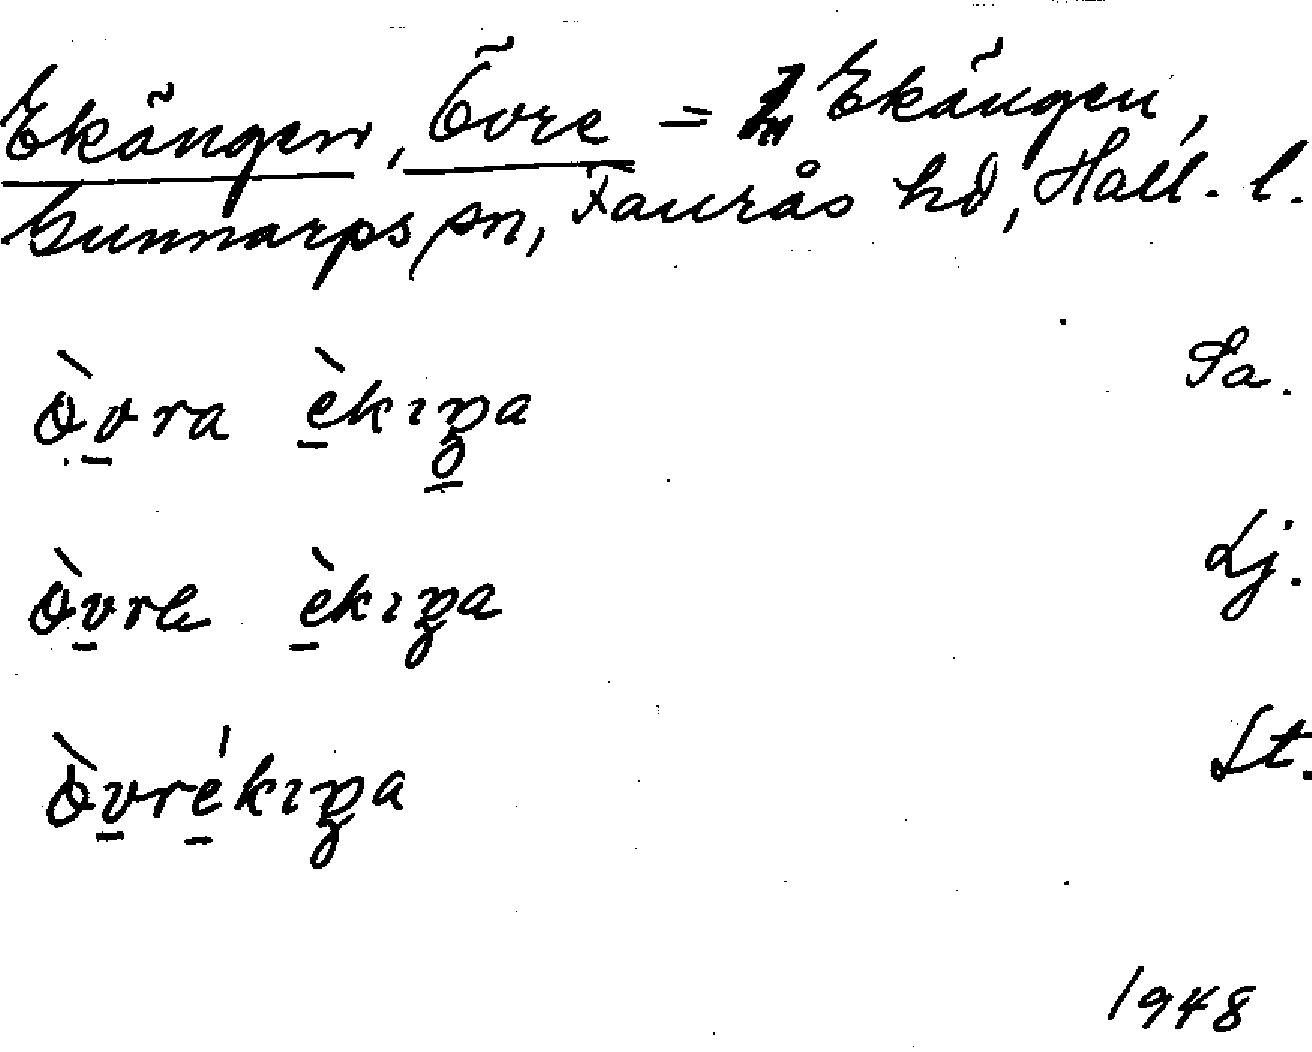 Ekängen, Övre = Ekängen,
Gunnarps sn, Faurås hd, Hall. l.
òvra èkiŋa Sa.
òvre èkiŋa Lj.
òvrékiŋa St.
1948